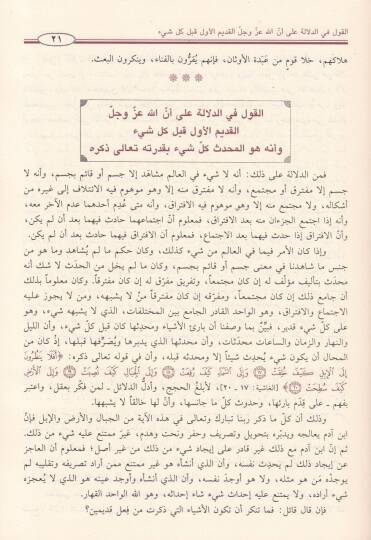 القول في الدلالة على أنّ الله عزّ وجلّ القديم الأول قبل كل شيء
٢١
هلاكهم، خلا قومٍ من عَبَدة الأوثان، فإنهم يُقرُّون بالفناء، وينكرون البعث.
* * *
القول في الدلالة على أنّ الله عزّ وجلّ
القديم الأول قبل كل شيء
وأنه هو المحدث كلّ شيء بقدرته تعالى ذكره
فمن الدلالة على ذلك: أنه لا شيء في العالم مشاهَد إلا جسم أو قائم بجسم، وأنه لا
جسم إلا مفترق أو مجتمع، وأنه لا مفترق منه إلا وهو موهوم فيه الائتلاف إلى غيره من
أشكاله، ولا مجتمع منه إلا وهو موهوم فيه الافتراق، وأنه متى عُدِم أحدهما عدم الآخر معه،
وأنه إذا اجتمع الجزءان منه بعد الافتراق، فمعلوم أنّ اجتماعهما حادث فيهما بعد أن لم يكن،
وأنّ الافتراق إذا حدث فيهما بعد الاجتماع، فمعلوم أن الافتراق فيهما حادث بعد أن لم يكن.
وإذا كان الأمر فيما في العالم من شيء كذلك، وكان حكم ما لم يُشاهد وما هو من
جنس ما شاهدنا في معنى جسم أو قائم بجسم، وكان ما لم يخل من الحدَث لا شك أنه
محدث بتأليف مؤلِّف له إن كان مجتمعاً، وتفريق مفرِّق له إن كان مفترقاً. وكان معلوماً بذلك
أن جامع ذلك إن كان مجتمعاً، ومفرِّقه إن كان مفترقاً منْ لا يشبهه، ومن لا يجوز عليه
الاجتماع والافتراق، وهو الواحد القادر الجامع بين المختلفات، الذي لا يشبهه شيء، وهو
على كلّ شيء قدير، فبيِّنٌ بما وصفنا أن بارئ الأشياء ومحدِثها كان قبل كلّ شيء، وأن الليل
والنهار والزمان والساعات محدَثات، وأن محدثها الذي يدبرها ويُصَرِّفها قبلها، إذْ كان من
المحال أن يكون شيء يُحدِث شيئاً إلا ومحدثه قبله، وأن في قوله تعالى ذكره: ﴿أَفَلَا يَنظُرُونَ
إِلَى الْإِبِلِ كَيْفَ خُلِقَتْ ١٧ وَإِلَى السَّمَاءِ كَيْفَ رُفِعَتْ ١٨ وَإِلَى الْجِبَالِ كَيْفَ نُصِبَتْ ١٩ وَإِلَى الْأَرْضِ
كَيْفَ سُطِحَتْ ٢٠﴾ (الغاشية: ١٧ - ٢٠)، لأبلغَ الحجج، وأدلَّ الدلائل ـ لمن فكّر بعقل، واعتبر
بفهم ـ على قِدَم بارئها، وحدوث كلّ ما جانسها، وأنّ لها خالقاً لا يشبهها.
وذلك أن كلّ ما ذكر ربنا تبارك وتعالى في هذه الآية من الجبال والأرض والإبل فإنّ
ابن آدم يعالجه ويدبّره بتحويل وتصريف وحفر ونحت وهدم، غيرَ ممتنع عليه شيء من ذلك.
ثم إنّ ابن آدم مع ذلك غير قادر على إيجاد شيء من ذلك من غير أصل؛ فمعلوم أن العاجز
عن إيجاد ذلك لم يُحدِث نفسَه، وأن الذي أنشأه هو غير ممتنع ممن أراد تصريفه وتقليبه لم
يوجدْه مَن هو مثله، ولا هو أوجدَ نفسه، وأن الذي أنشأه وأوجد عينه هو الذي لا يُعجزه
شيء أراده، ولا يمتنع عليه إحداث شيء شاء إحداثه، وهو الله الواحد القهار.
فإن قال قائل: فما تنكر أن تكون الأشياء التي ذكرت من فعل قديمين؟